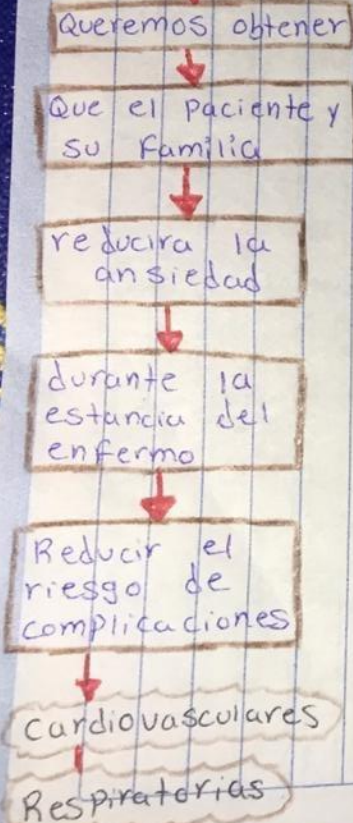 Queremos obtener
Que el paciente y
su Familia
reducira la
ansiedad
durante la
estancia del
enfermo
Reducir el
riesgo de
complicaciones
Cardiovasculares
Respiratorias